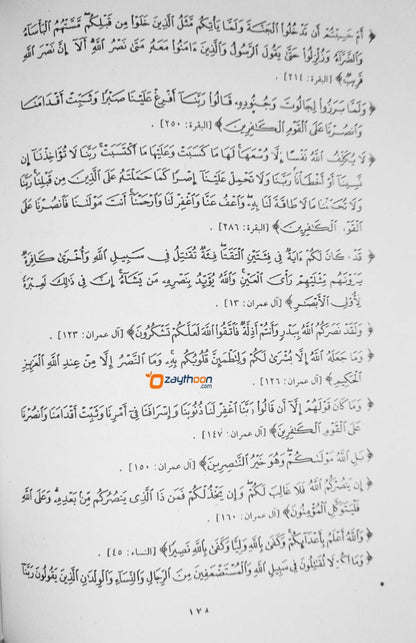 ﴿ أَمْ حَسِبْتُمْ أَن تَدْخُلُوا الْجَنَّةَ وَلَمَّا يَأْتِكُم مَّثَلُ الَّذِينَ خَلَوْا مِن قَبْلِكُم مَّسَّتْهُمُ الْبَأْسَاءُ
وَالضَّرَّاءُ وَزُلْزِلُوا حَتَّى يَقُولَ الرَّسُولُ وَالَّذِينَ ءَامَنُوا مَعَهُ مَتَى نَصْرُ اللَّهِ أَلَا إِنَّ نَصْرَ اللَّهِ
قَرِيبٌ ﴾ [البقرة: ٢١٤] .
﴿ وَلَمَّا بَرَزُوا لِجَالُوتَ وَجُنُودِهِ قَالُوا رَبَّنَا أَفْرِغْ عَلَيْنَا صَبْرًا وَثَبِّتْ أَقْدَامَنَا
وَانصُرْنَا عَلَى الْقَوْمِ الْكَافِرِينَ ﴾ [البقرة: ٢٥٠] .
﴿ لَا يُكَلِّفُ اللَّهُ نَفْسًا إِلَّا وُسْعَهَا لَهَا مَا كَسَبَتْ وَعَلَيْهَا مَا اكْتَسَبَتْ رَبَّنَا لَا تُؤَاخِذْنَا إِن
نَّسِينَا أَوْ أَخْطَأْنَا رَبَّنَا وَلَا تَحْمِلْ عَلَيْنَا إِصْرًا كَمَا حَمَلْتَهُ عَلَى الَّذِينَ مِن قَبْلِنَا رَبَّنَا
وَلَا تُحَمِّلْنَا مَا لَا طَاقَةَ لَنَا بِهِ وَاعْفُ عَنَّا وَاغْفِرْ لَنَا وَارْحَمْنَا أَنتَ مَوْلَانَا فَانصُرْنَا عَلَى
الْقَوْمِ الْكَافِرِينَ ﴾ [البقرة: ٢٨٦] .
﴿ قَدْ كَانَ لَكُمْ ءَايَةٌ فِي فِئَتَيْنِ الْتَقَتَا فِئَةٌ تُقَاتِلُ فِي سَبِيلِ اللَّهِ وَأُخْرَى كَافِرَةٌ
يَرَوْنَهُم مِّثْلَيْهِمْ رَأْيَ الْعَيْنِ وَاللَّهُ يُؤَيِّدُ بِنَصْرِهِ مَن يَشَاءُ إِنَّ فِي ذَلِكَ لَعِبْرَةً
لِّأُولِي الْأَبْصَارِ ﴾ [آل عمران: ١٣] .
﴿ وَلَقَدْ نَصَرَكُمُ اللَّهُ بِبَدْرٍ وَأَنتُمْ أَذِلَّةٌ فَاتَّقُوا اللَّهَ لَعَلَّكُمْ تَشْكُرُونَ ﴾ [آل عمران: ١٢٣] .
﴿ وَمَا جَعَلَهُ اللَّهُ إِلَّا بُشْرَى لَكُمْ وَلِتَطْمَئِنَّ قُلُوبُكُم بِهِ وَمَا النَّصْرُ إِلَّا مِنْ عِندِ اللَّهِ الْعَزِيزِ
الْحَكِيمِ ﴾ [آل عمران: ١٢٦] .
Ozaythoon.com
﴿ وَمَا كَانَ قَوْلَهُمْ إِلَّا أَن قَالُوا رَبَّنَا اغْفِرْ لَنَا ذُنُوبَنَا وَإِسْرَافَنَا فِي أَمْرِنَا وَثَبِّتْ أَقْدَامَنَا وَانصُرْنَا
عَلَى الْقَوْمِ الْكَافِرِينَ ﴾ [آل عمران: ١٤٧] .
﴿ بَلِ اللَّهُ مَوْلَاكُمْ وَهُوَ خَيْرُ النَّاصِرِينَ ﴾ [آل عمران: ١٥٠] .
﴿ إِن يَنصُرْكُمُ اللَّهُ فَلَا غَالِبَ لَكُمْ وَإِن يَخْذُلْكُمْ فَمَن ذَا الَّذِي يَنصُرُكُم مِّن بَعْدِهِ وَعَلَى اللَّهِ
فَلْيَتَوَكَّلِ الْمُؤْمِنُونَ ﴾ [آل عمران: ١٦٠] .
﴿ وَاللَّهُ أَعْلَمُ بِأَعْدَائِكُمْ وَكَفَى بِاللَّهِ وَلِيًّا وَكَفَى بِاللَّهِ نَصِيرًا ﴾ [النساء: ٤٥] .
﴿ وَمَا لَكُمْ لَا تُقَاتِلُونَ فِي سَبِيلِ اللَّهِ وَالْمُسْتَضْعَفِينَ مِنَ الرِّجَالِ وَالنِّسَاءِ وَالْوِلْدَانِ الَّذِينَ يَقُولُونَ رَبَّنَا
١٢٨